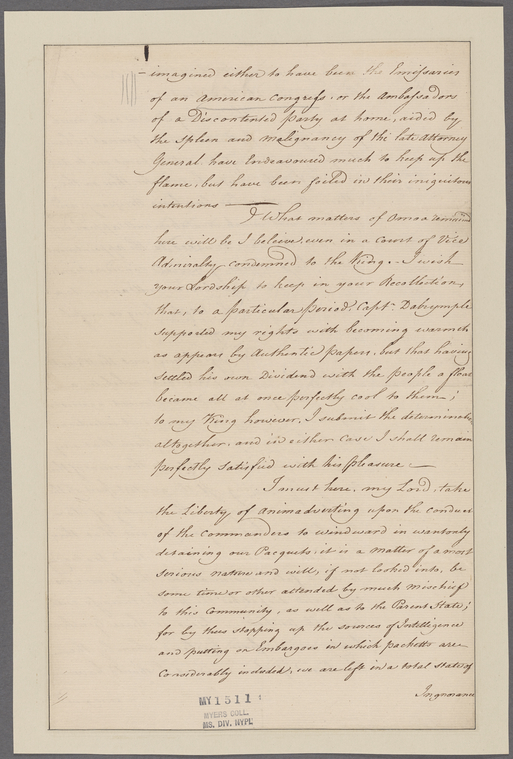 imagined either to have been the Emissaries
of an American Congress, or the Ambassadors
of a Discontented party at home, aided by
the spleen and malignancy of the late Attorney
General have Endeavoured much to keep up the
flame, but have been foiled in their iniquitous
intentions —
What matters of Omoa remain
here will be I beleive, even in a Court of Vice
Admiralty, condemned to the King. I wish
your Lordship to keep in your Recollection,
that, to a particular period, Capt. Dalrymple
supported my rights with becoming warmth
as appears by Authentic papers, but that having
settled his own Dividend with the people a float
became all at once perfectly cool to them;
to my King however, I submit the determination
altogether, and in either Case I shall remain
perfectly satisfied with his Pleasure. —
I must here, my Lord, take
the Liberty of animadverting upon the conduct
of the commanders to windward in wantonly
detaining our Pacquets; it is a matter of a most
serious nature and will, if not looked into, be
some time or other attended by much mischief
to this Community, as well as to the Parent State;
for by thus stopping up the sources of Intelligence
and putting on Embargoes in which packetts are
considerably included, we are left in a total state of
Ingnorance
MY 1511
MYERS COLL.
MS. DIV. NYPL